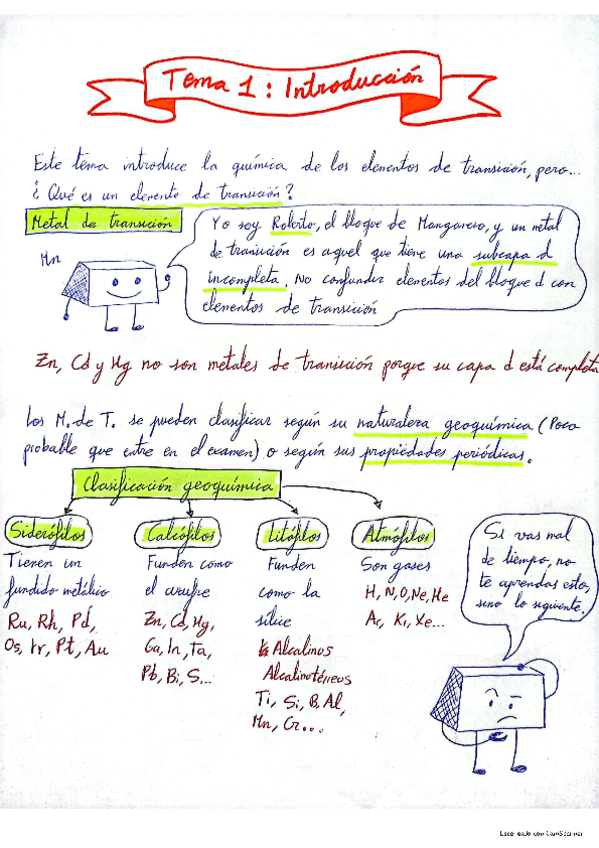 Tema 1: Introducción
Este tema introduce la química de los elementos de transición, pero...
¿Qué es un elemento de transición?
Metal de transición
Mn
Yo soy Roberto, el bloque de Manganeso, y un metal
de transición es aquel que tiene una subcapa d
incompleta. No confundir elementos del bloque d con
elementos de transición
Zn, Cd y Hg no son metales de transición porque su capa d está completa
Los M. de T. se pueden clasificar según su naturaleza geoquímica (Poco
probable que entre en el examen) o según sus propiedades periódicas.
Clasificación geoquímica
Siderófilos
Tienen un
fundido metálico
Ru, Rh, Pd,
Os, Ir, Pt, Au
Calcófilos
Funden como
el azufre
Zn, Cd, Hg,
Ga, In, Ta,
Pb, Bi, S...
Litófilos
Funden
como la
sílice
Alcalinos
Alcalinotérreos
Ti, Si, B, Al,
Mn, Cr...
Atmófilos
Son gases
H, N, O, Ne, He
Ar, Kr, Xe...
Si vas mal
de tiempo, no
te aprendas esto,
sino lo siguiente.
Escaneado con CamScanner